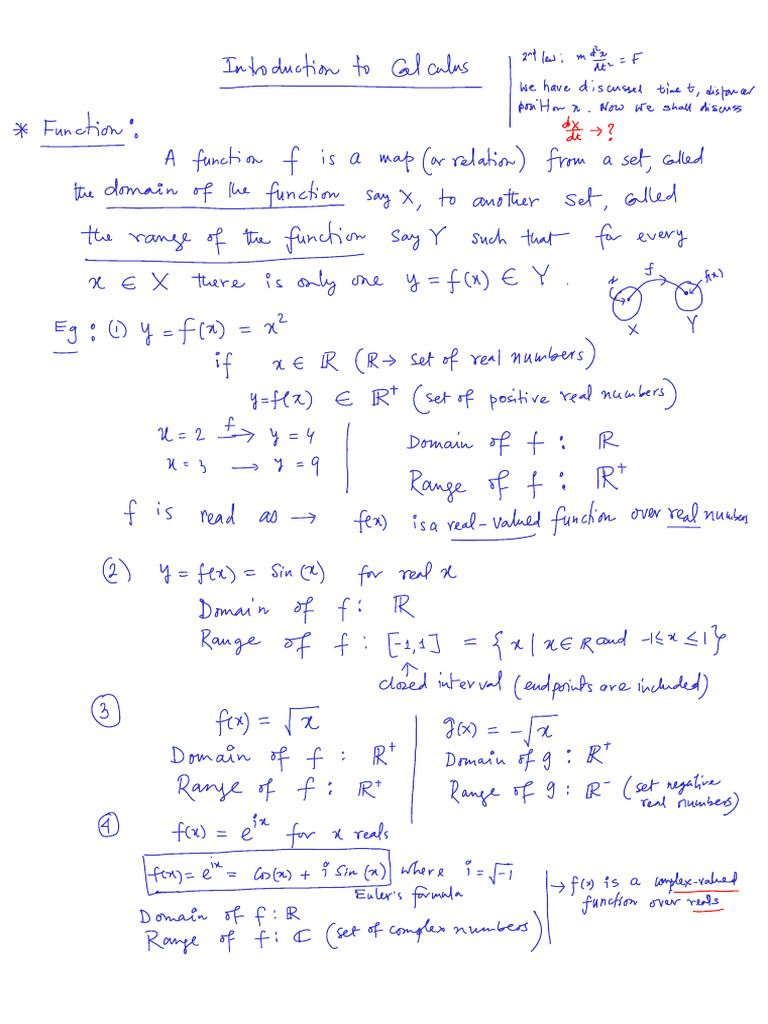 Introduction to Calculus
2nd law: m d²x/dt² = F
We have discussed time t, distance
position x. Now we shall discuss
dx/dt → ?
* Function:
A function f is a map (or relation) from a set, called
the domain of the function say X, to another set, called
the range of the function say Y such that for every
x ∈ X there is only one y = f(x) ∈ Y.
x f f(x)
X Y
Eg: (1) y = f(x) = x²
if x ∈ ℝ (ℝ → set of real numbers)
y=f(x) ∈ ℝ⁺ (set of positive real numbers)
x = 2 —f→ y = 4
x = 3 → y = 9
Domain of f : ℝ
Range of f : ℝ⁺
f is read as → f(x) is a real-valued function over real numbers
(2) y = f(x) = Sin(x) for real x
Domain of f : ℝ
Range of f : [-1,1] = {x | x ∈ ℝ and -1 ≤ x ≤ 1}
↑
closed interval (endpoints are included)
(3) f(x) = √x
Domain of f : ℝ⁺
Range of f : ℝ⁺
g(x) = -√x
Domain of g : ℝ⁺
Range of g : ℝ⁻ (set negative
real numbers)
(4) f(x) = e^ix for x reals
f(x) = e^ix = Cos(x) + i Sin(x) where i = √-1
Euler's formula
Domain of f : ℝ
Range of f : ℂ (set of complex numbers)
→ f(x) is a complex-valued
function over reals